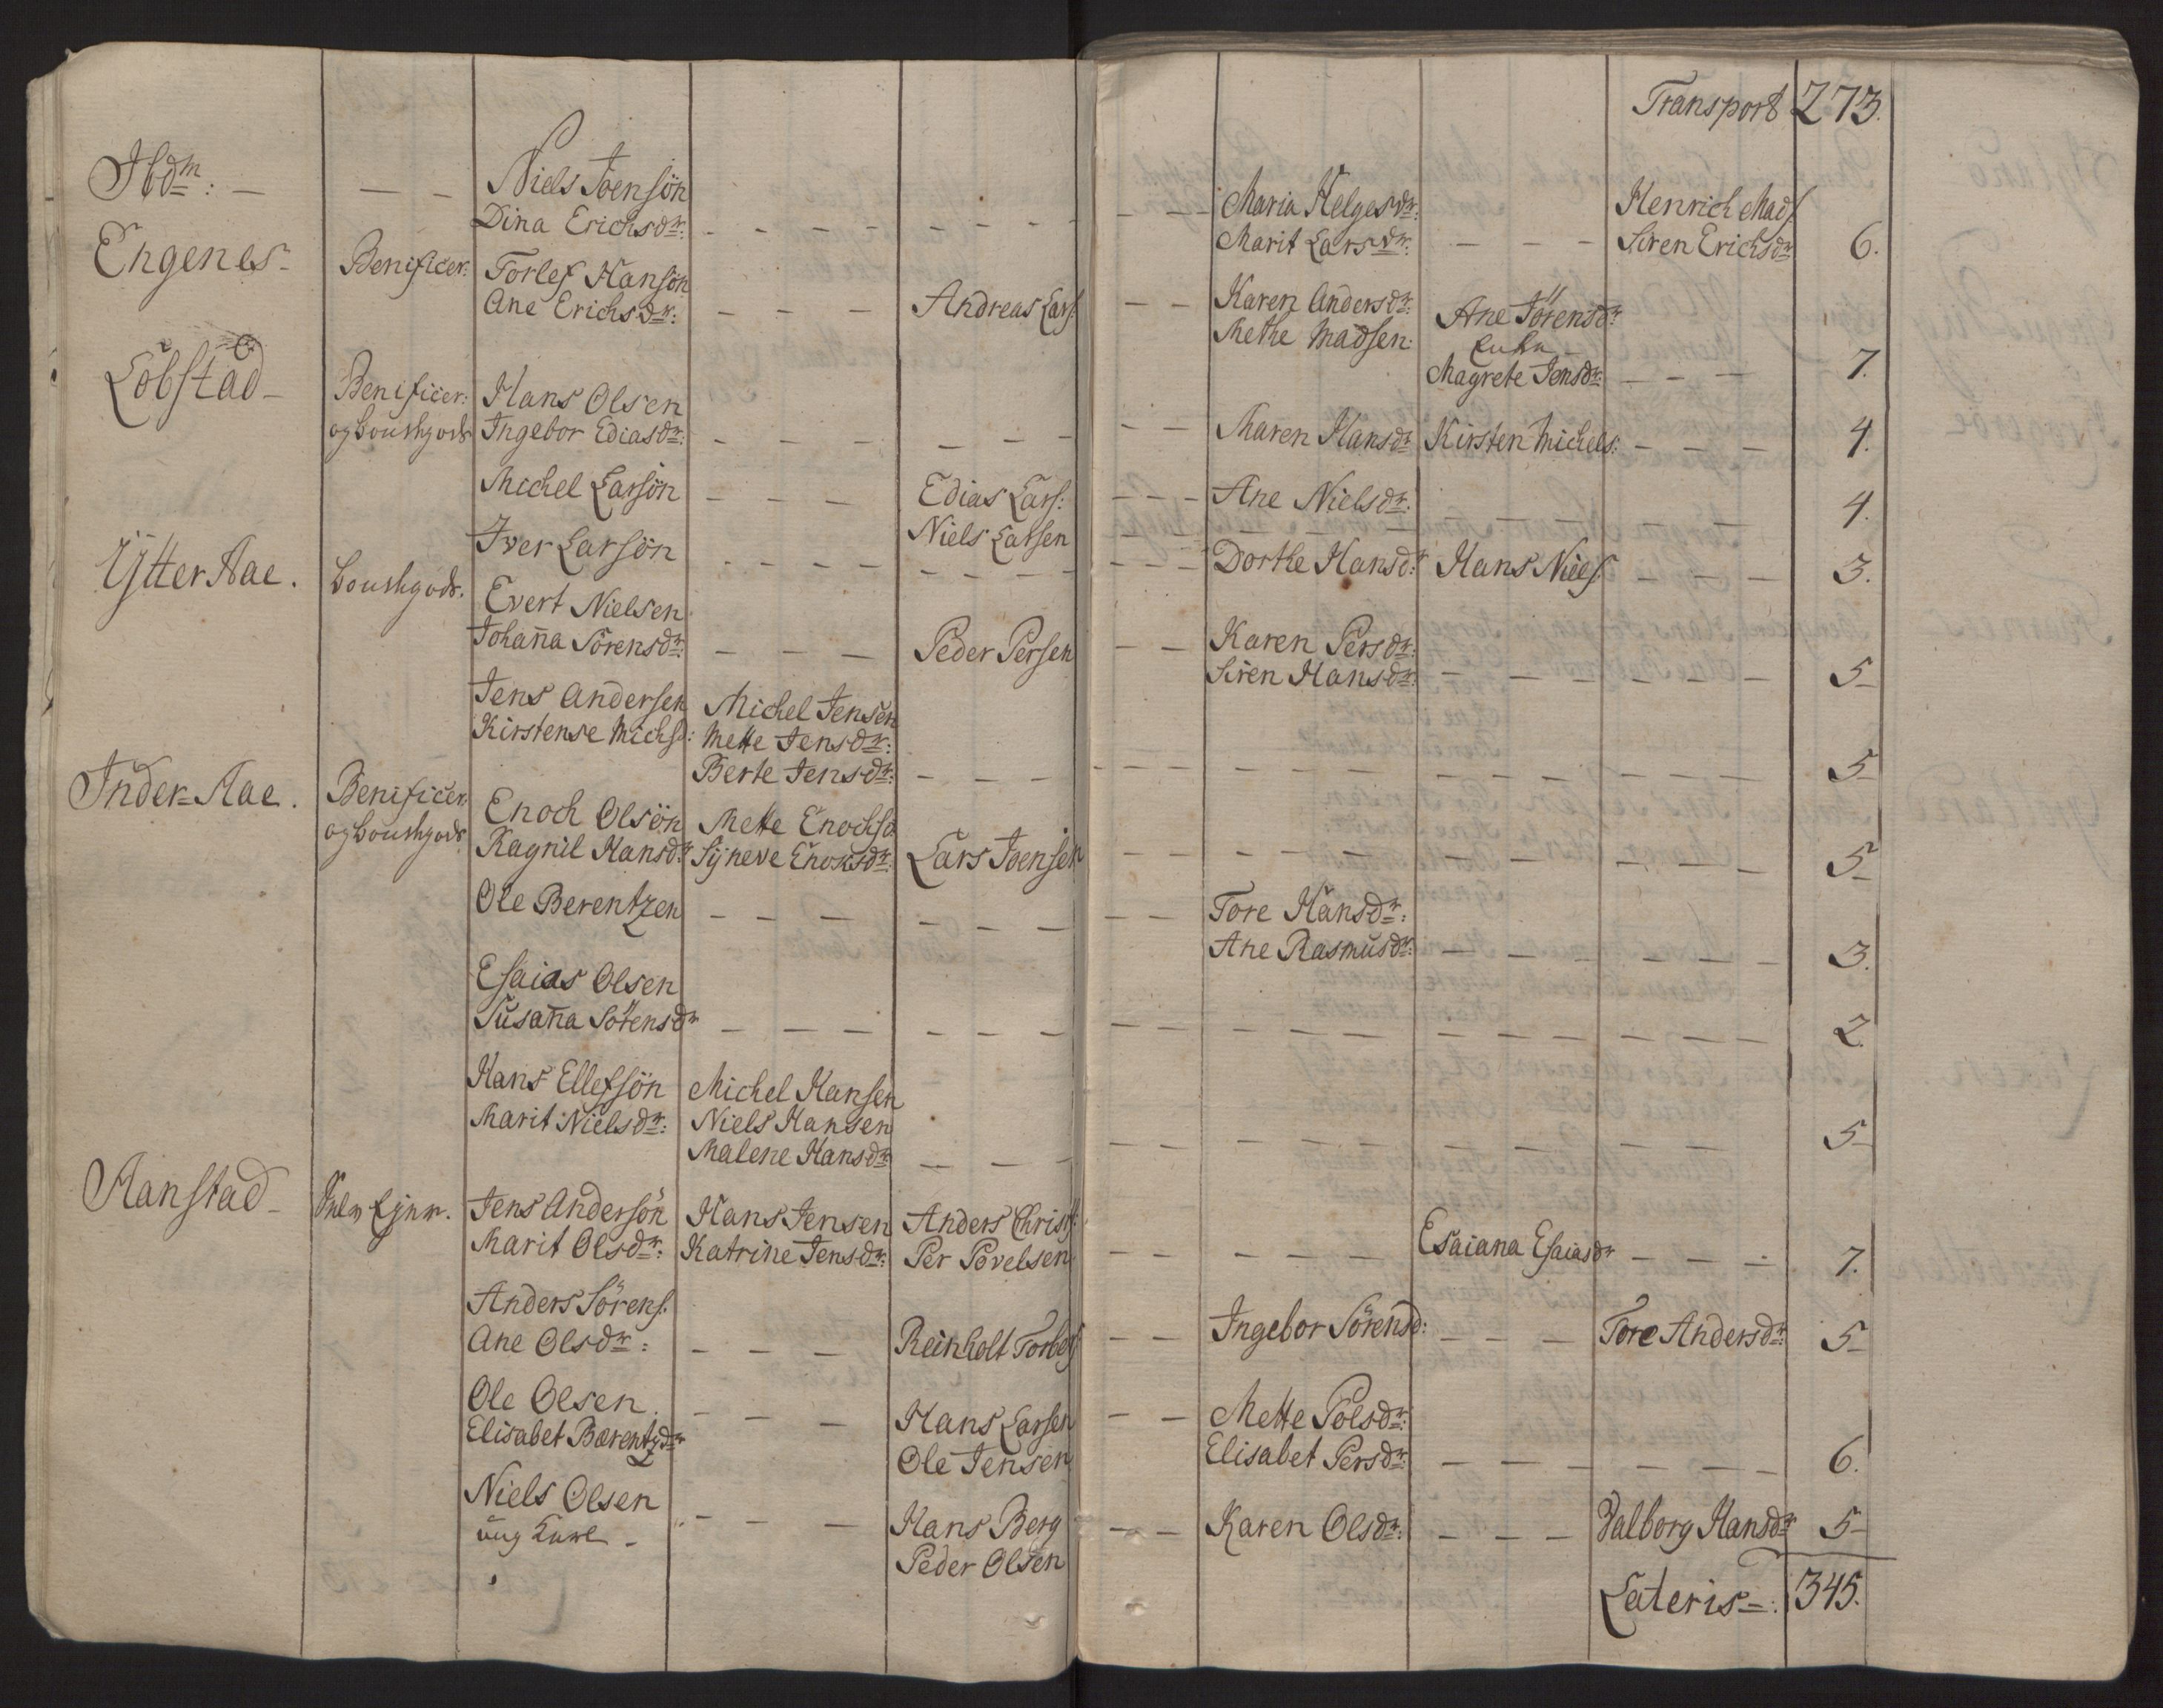 Transport 273.
Ibdm: — — — Niels Joensön Maria Helgesdr: Henrich Mads
Dina Erichsdr: - - - - - - - - - Marit Larsdr: - - - Siren Erichsdr 6.
Engenes - Benificer: Torlef Hansön
Ane Erichsdr: - - - Andreas Lars: - - Karen Andersdr: Ane Sörensdr:
Methe Madsen: Enke
Magrete Jensdr: - - - 7.
Löbstad - Benificer: Hans Olsen
og Boushgods Ingebor Ediasdr: - - - - - - - - Maren Hansdr Kirsten Michels: - - - 4.
Michel Larsön - - - Edias Lars: - - - Ane Nielsdr: - - - - - 4.
Niels Larsen
Iver Larsön - - - - - - - - - - Dorthe Hansdr: Hans Niels: - - - 3.
Ytter Aae. Boushgods. Evert Nielsen
Johaña Sörensdr: - - - Peder Persen - - Karen Persdr:
Siren Hansdr: - - - - - - 5-
Jens Andersen Michel Jensen
Kirstense Michsd: Mette Jensdr:
Berte Jensdr: - - - - - - - - - - - - 5-
Inder-Aae. Benificer: Enoch Olsön Mette Enochsd
og Boushgods Ragnil Hansdr Sÿneve Enoksdr: Lars Joensen - - - - - - - - - 5-
Ole Berentzen - - - - - - - - Tore Hansdr:
Ane Rasmusdr: - - - - - - 3.
Esaias Olsen
Susaña Sörensdr - - - - - - - - - - - - - - 2.
Hans Ellefsön Michel Hansen
Marit Nielsdr: Niels Hansen
Malene Hansdr - - - - - - - - - - - 5-
Aanstad - Jens Andersön Hans Jensen Anders Christ:
Marit Olsdr: Katrine Jensdr: Per Povelsen - - - - - - Esaiana Esaiasdr - - - 7.
Anders Sörens:
Ane Olsdr: - - - Reinholt Torbers - - Ingebor Sörensd: - - - Tore Andersdr: 5-
Ole Olsen. - - - Hans Larsen - - Mette Polsdr:
Elisabet Bærentzdr Ole Jensen Elisabet Persdr: - - - - - - 6.
Niels Olsen - - - Hans Berg - - Karen Olsdr: - - - Valborg Hansdr 5-
ung Karl - Peder Olsen
Lateris =: 345.